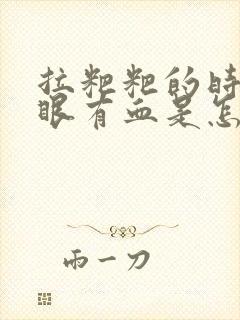 拉粑粑的时
眼有血是怎
雨一刀